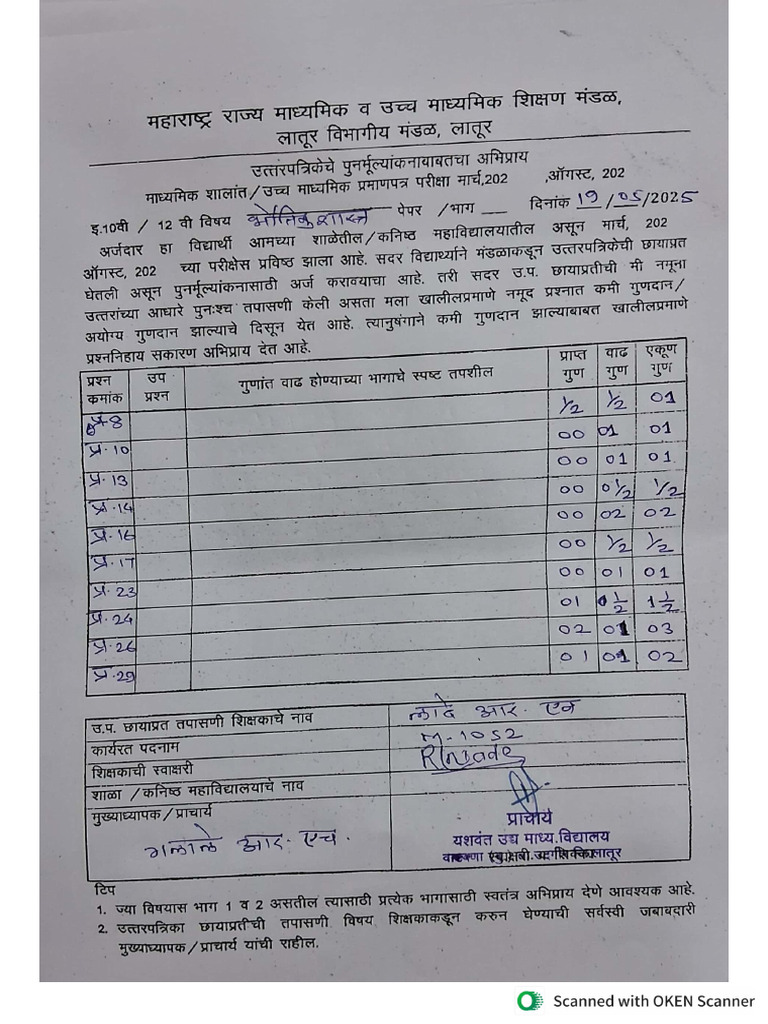 महाराष्ट्र राज्य माध्यमिक व उच्च माध्यमिक शिक्षण मंडळ,
लातूर विभागीय मंडळ, लातूर
उत्तरपत्रिकेचे पुनर्मूल्यांकनाबाबतचा अभिप्राय
माध्यमिक शालांत/उच्च माध्यमिक प्रमाणपत्र परीक्षा मार्च,202 ,ऑगस्ट, 202
इ.10वी / 12 वी विषय भौतिकशास्त्र पेपर /भाग ___ दिनांक 19/05/2025
अर्जदार हा विद्यार्थी आमच्या शाळेतील/कनिष्ठ महाविद्यालयातील असून मार्च, 202
ऑगस्ट, 202 च्या परीक्षेस प्रविष्ठ झाला आहे. सदर विद्यार्थ्याने मंडळाकडून उत्तरपत्रिकेची छायाप्रत
घेतली असून पुनर्मूल्यांकनासाठी अर्ज करावयाचा आहे. तरी सदर उ.प. छायाप्रतीची मी नमूना
उत्तरांच्या आधारे पुनःश्च तपासणी केली असता मला खालीलप्रमाणे नमूद प्रश्नात कमी गुणदान/
अयोग्य गुणदान झाल्याचे दिसून येत आहे. त्यानुषंगाने कमी गुणदान झाल्याबाबत खालीलप्रमाणे
प्रश्ननिहाय सकारण अभिप्राय देत आहे.
प्रश्न कमांक उप प्रश्न गुणांत वाढ होण्याच्या भागाचे स्पष्ट तपशील प्राप्त गुण वाढ गुण एकूण गुण
प्र-8 1/2 1/2 01
प्र.10 00 01 01
प्र.13 00 01 01
प्र.14 00 0 1/2 1/2
प्र.16 00 02 02
प्र.17 00 1/2 1/2
प्र.23 00 01 01
प्र.24 01 0 1/2 1 1/2
प्र.26 02 01 03
प्र.29 01 01 02
उ.प. छायाप्रत तपासणी शिक्षकाचे नाव लादे आर. एन
कार्यरत पदनाम M-1052
शिक्षकाची स्वाक्षरी
शाळा /कनिष्ठ महाविद्यालयाचे नाव
मुख्याध्यापक/प्राचार्य गलाले आर. एच.
प्राचार्य
यशवंत उच्च माध्य.विद्यालय
टिप
1. ज्या विषयास भाग 1 व 2 असतील त्यासाठी प्रत्येक भागासाठी स्वतंत्र अभिप्राय देणे आवश्यक आहे.
2. उत्तरपत्रिका छायाप्रतीची तपासणी विषय शिक्षकाकडून करुन घेण्याची सर्वस्वी जबाबदारी
मुख्याध्यापक/प्राचार्य यांची राहील.
Scanned with OKEN Scanner